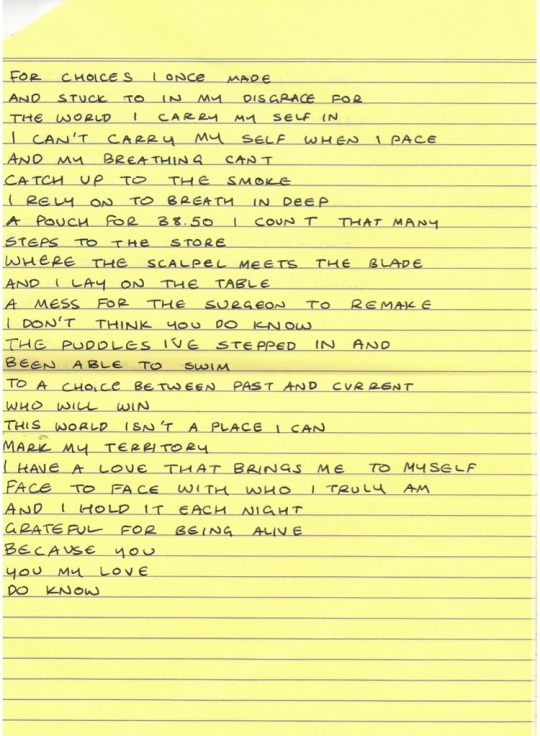 FOR CHOICES I ONCE MADE
AND STUCK TO IN MY DISGRACE FOR
THE WORLD I CARRY MY SELF IN
I CAN'T CARRY MY SELF WHEN I PACE
AND MY BREATHING CANT
CATCH UP TO THE SMOKE
I RELY ON TO BREATH IN DEEP
A POUCH FOR 38.50 I COUNT THAT MANY
STEPS TO THE STORE
WHERE THE SCALPEL MEETS THE BLADE
AND I LAY ON THE TABLE
A MESS FOR THE SURGEON TO REMAKE
I DON'T THINK YOU DO KNOW
THE PUDDLES I'VE STEPPED IN AND
BEEN ABLE TO SWIM
TO A CHOICE BETWEEN PAST AND CURRENT
WHO WILL WIN
THIS WORLD ISN'T A PLACE I CAN
MARK MY TERRITORY
I HAVE A LOVE THAT BRINGS ME TO MYSELF
FACE TO FACE WITH WHO I TRULY AM
AND I HOLD IT EACH NIGHT
GRATEFUL FOR BEING ALIVE
BECAUSE YOU
YOU MY LOVE
DO KNOW